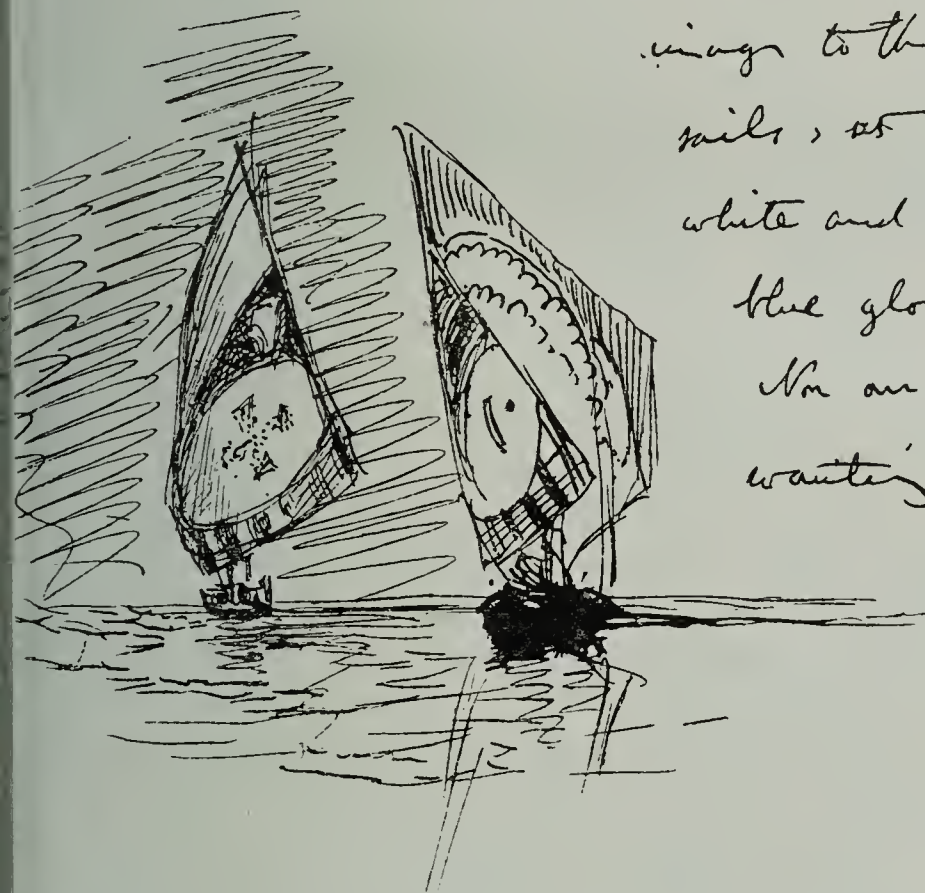 image to th
sails, set
white and
blue glo
Nor are
wanting